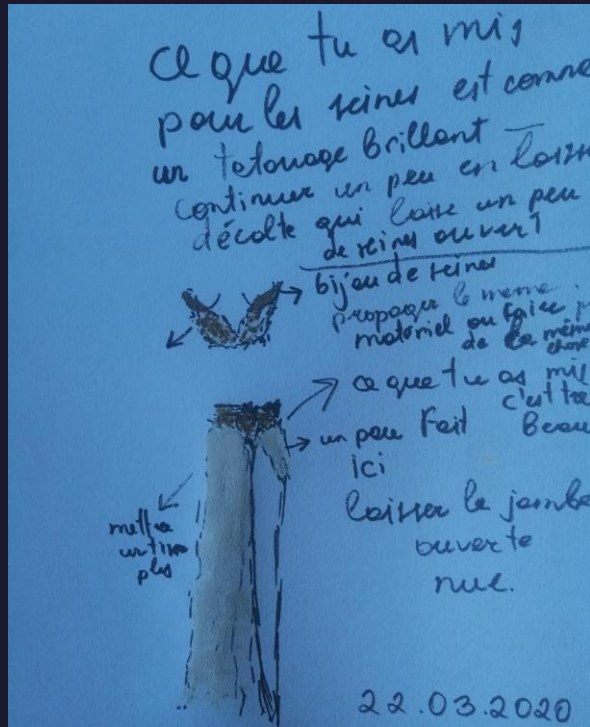 ce que tu as mis
pour les seines est comme
un tatouage brillant —
continuer un peu en
décolte qui laise un peu
de seines ouvert
bijou de seines
propager le meme
matériel ou faire
de la même
chose
ce que tu as mis
c'est
un peu Fait
ici
laisser la jambe
ouverte
nue.
mettre
un
plus
22.03.2020